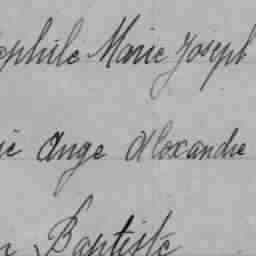 ophile Marie Joseph
ie Ange Alexandre
n Baptiste